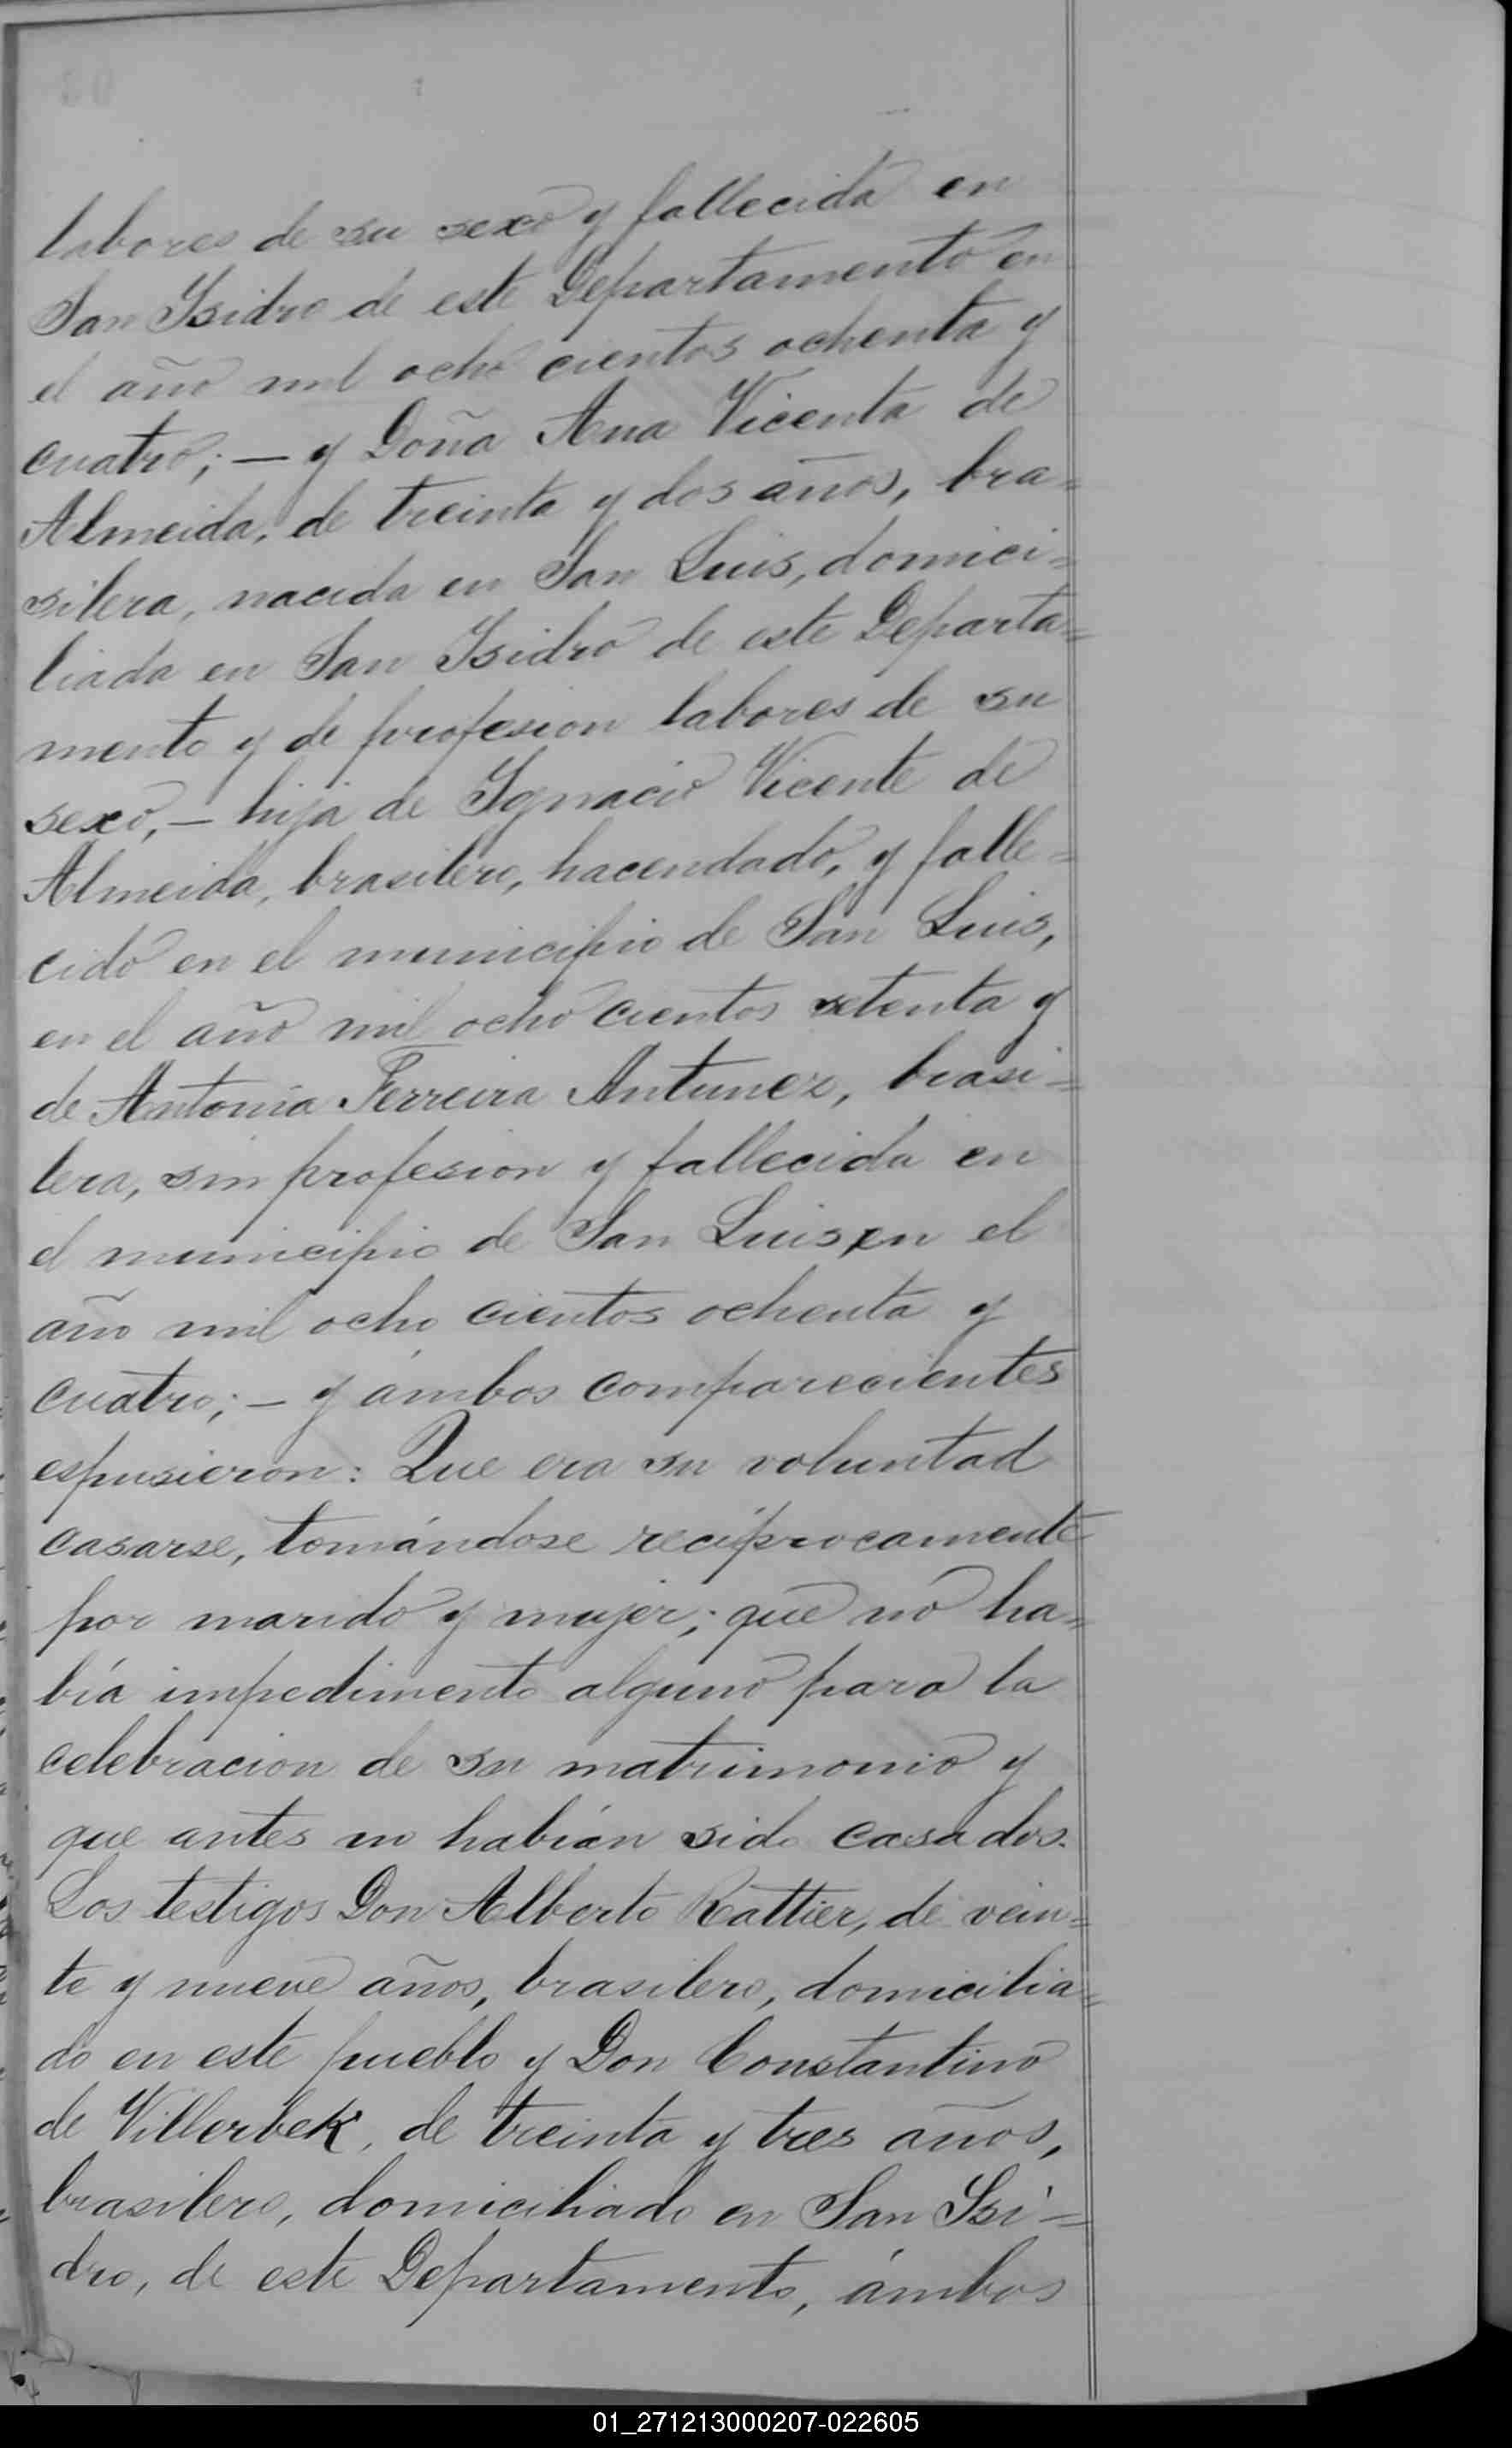 labores de su sexo y fallecida en
San Isidro de este Departamento en
el año mil ocho cientos ochenta y
cuatro; — y Doña Ana Vicenta de
Almeida, de treinta y dos años, bra=
silera, nacida en San Luis, domici=
liada en San Isidro de este Departa=
mento y de profesion labores de su
sexo, — hija de Ignacio Vicente de
Almeida, brasilero, hacendado, y falle=
cido en el municipio de San Luis,
en el año mil ocho cientos setenta y
de Antonia Ferreira Antunez, brasi=
lera, sin profesion y fallecida en
el municipio de San Luis, en el
año mil ocho cientos ochenta y
cuatro; — y ámbos comparecientes
espusieron: Que era su voluntad
casarse, tomándose recíprocamente
por marido y mujer; que no ha=
bía impedimento alguno para la
celebracion de su matrimonio y
que antes no habían sido casados.
Los testigos Don Alberto Rattier, de vein=
te y nueve años, brasilero, domicilia=
do en este pueblo y Don Constantino
de Villerbek, de treinta y tres años,
brasilero, domiciliado en San Isi=
dro, de este Departamento, ámbos
01_271213000207-022605